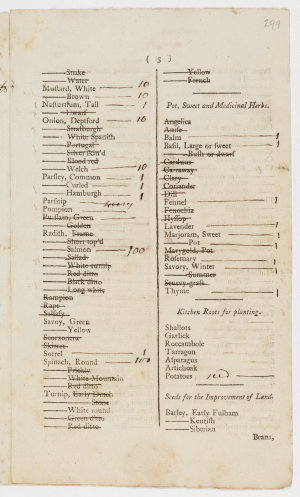 299
( 3 )
——Snake
——Water
Mustard, White —— 10
——Brown —— 10
Nasturtium, Tall —— 1
——Dwarf
Onion, Deptford —— 16
——Strasburgh
——White Spanish
——Portugal
——Silver skin'd
——Blood red
——Welch —— 10
Parsley, Common —— 1
——Curled —— 1
——Hamburgh —— 1
Parsnip
Pompion
Purslain, Green
——Golden
Radish, Frame
——Short top'd
——Salmon —— 100
——Sallad
——White turnip
——Red ditto
——Black ditto
——Long white
Rampion
Rape
Salsafy
Savoy, Green
——Yellow
Scorzonera
Skirret
Sorrel —— 1
Spinach, Round —— 100
——Prickly
——White Mountain
——Red ditto
Turnip, Early Dutch
——Stone
——White round
——Green ditto
——Red ditto
——Yellow
——French
Pot, Sweet and Medicinal Herbs.
Angelica
Anise
Balm —— 1
Basil, Large or sweet —— 1
——Bush or dwarf
Carduus
Carraway
Clary
Coriander
Dill
Fennel —— 1
Fenochia
Hyssop
Lavender —— 1
Marjoram, Sweet —— 1
——Pot —— 1
Marygold, Pot
Rosemary —— 1
Savory, Winter —— 1
——Summer
Scurvy-grass
Thyme —— 1
Kitchen Roots for planting.
Shallots
Garlick
Roccambole
Tarragon
Asparagus
Artichoak
Potatoes
Seeds for the Improvement of Land.
Barley, Early Fulham
——Kentish
——Siberian
Beans,